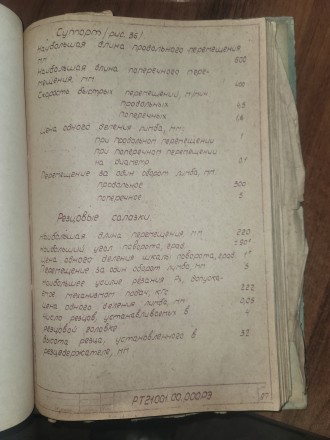 Суппорт (рис. 36).
Наибольшая длина продольного перемещения,
мм 600
Наибольшая длина поперечного пере-
мещения, мм 400
Скорость быстрых перемещений, м/мин:
продольных 4,5
поперечных
Цена одного деления лимба, мм:
при продольном перемещении 1
при поперечном перемещении
на диаметр 0,1
Перемещение за один оборот лимба, мм:
продольное 300
поперечное 5
Резцовые салазки.
Наибольшая длина перемещения, мм 220
Наибольший угол поворота, град. ±90°
Цена одного деления шкалы поворота, град. 1°
Перемещение за один оборот лимба, мм 5
Наибольшее усилие резания Рz, допуска-
емое механизмом подач, кгс
Цена одного деления лимба, мм 0,05
Число резцов, устанавливаемых в 4
резцовой головке
Высота резца, установленного в 32
резцедержателе, мм
РТ21001.00.000РЭ